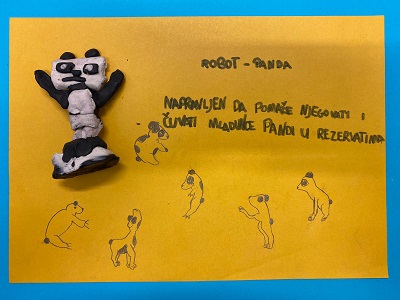 ROBOT - PANDA
NAPRAVLJEN DA POMAŽE NJEGOVATI I
ČUVATI MLADUNCE PANDI U REZERVATIMA